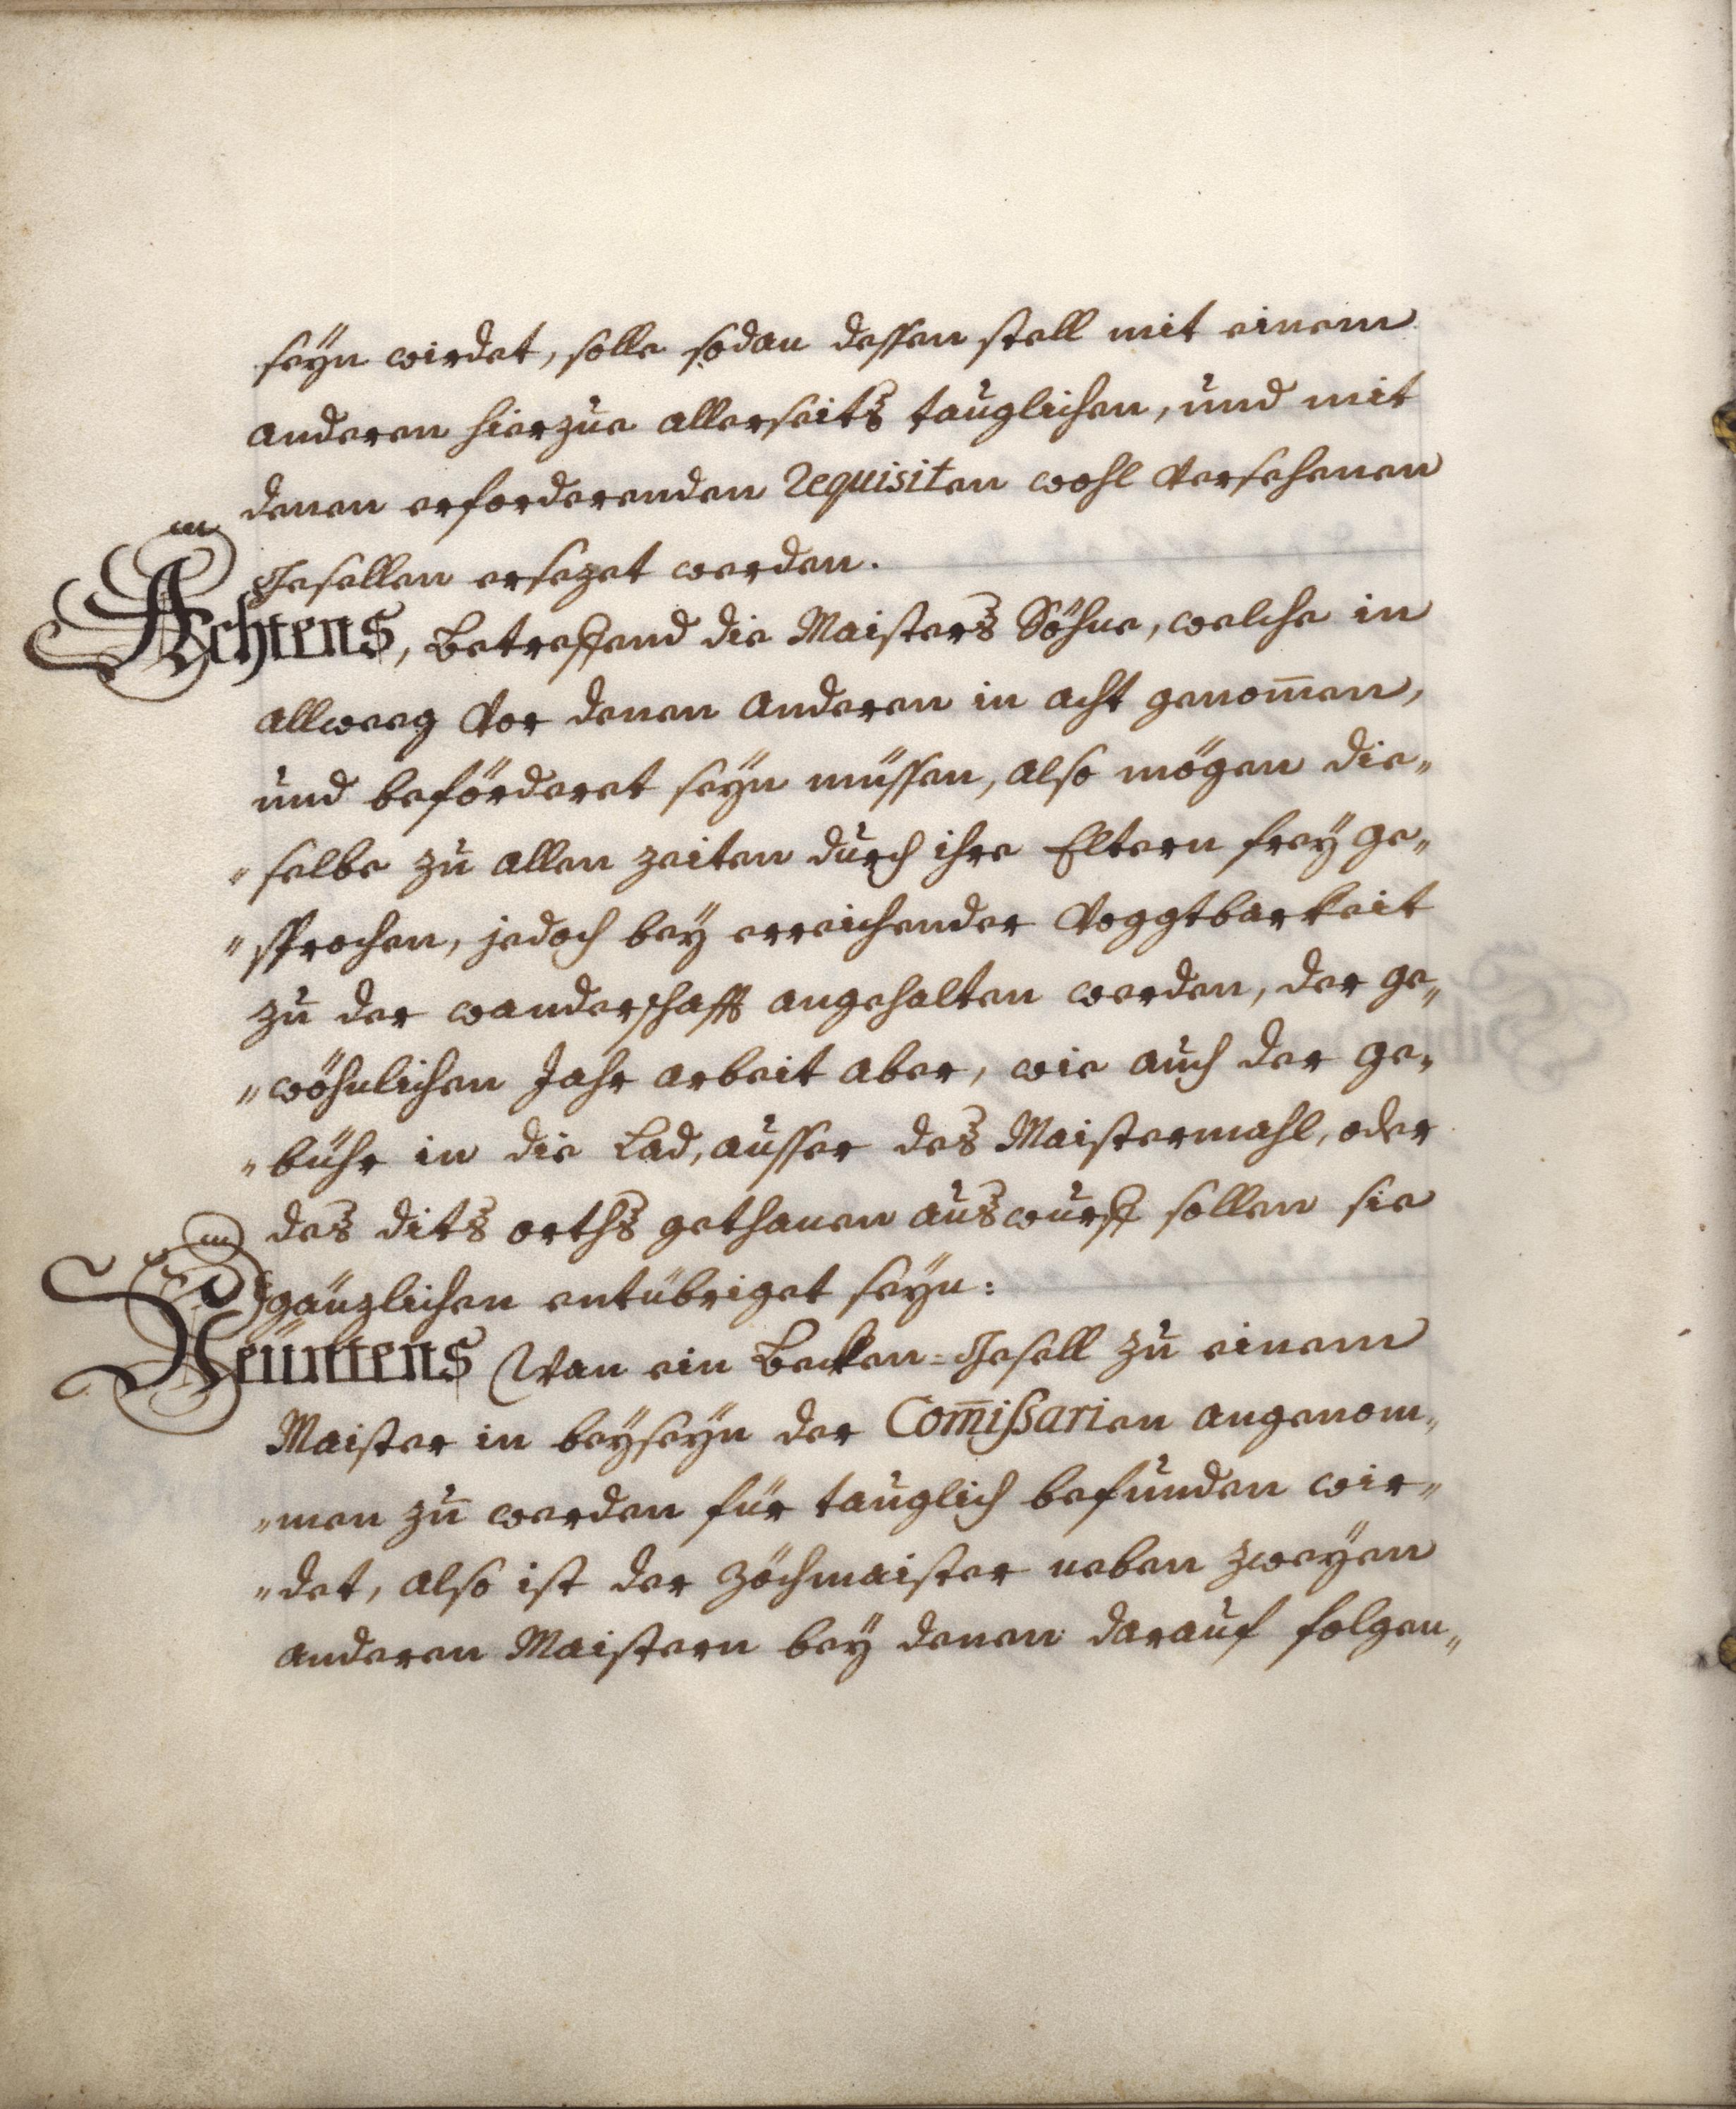 seyn wirdet, solle sodan dessen stell mit einem
anderen hierzue allerseits tauglichen, und mit
denen erforderenden Requisiten wohl versehenen
Gesellen ersezet werden.
Achtens, Betreffend die Maisters Söhne, welche in
allweeg vor denen anderen in acht genom̄en,
und beförderet seyn müssen, also mögen die„
„selbe zu allen zeiten durch ihre Eltern frey ge„
„sprochen, jedoch bey erreichender Voggtbarkeit
zu der wanderschafft angehalten werden, der ge„
„wöhnlichen Jahr arbeit aber, wie auch der ge„
„bühr in die Lad, ausser des Maistermahl, oder
des dits orths gethanen auswurff sollen sie
gänzlichen entübriget seyn:
Neuntens Wan ein Becken=Gesell zu einem
Maister in beyseyn der Com̄ißarien angenom„
„men zu werden für tauglich befunden wir„
„det, also ist der Zöchmaister neben zweyen
anderen Maistern bey denen darauf folgen„